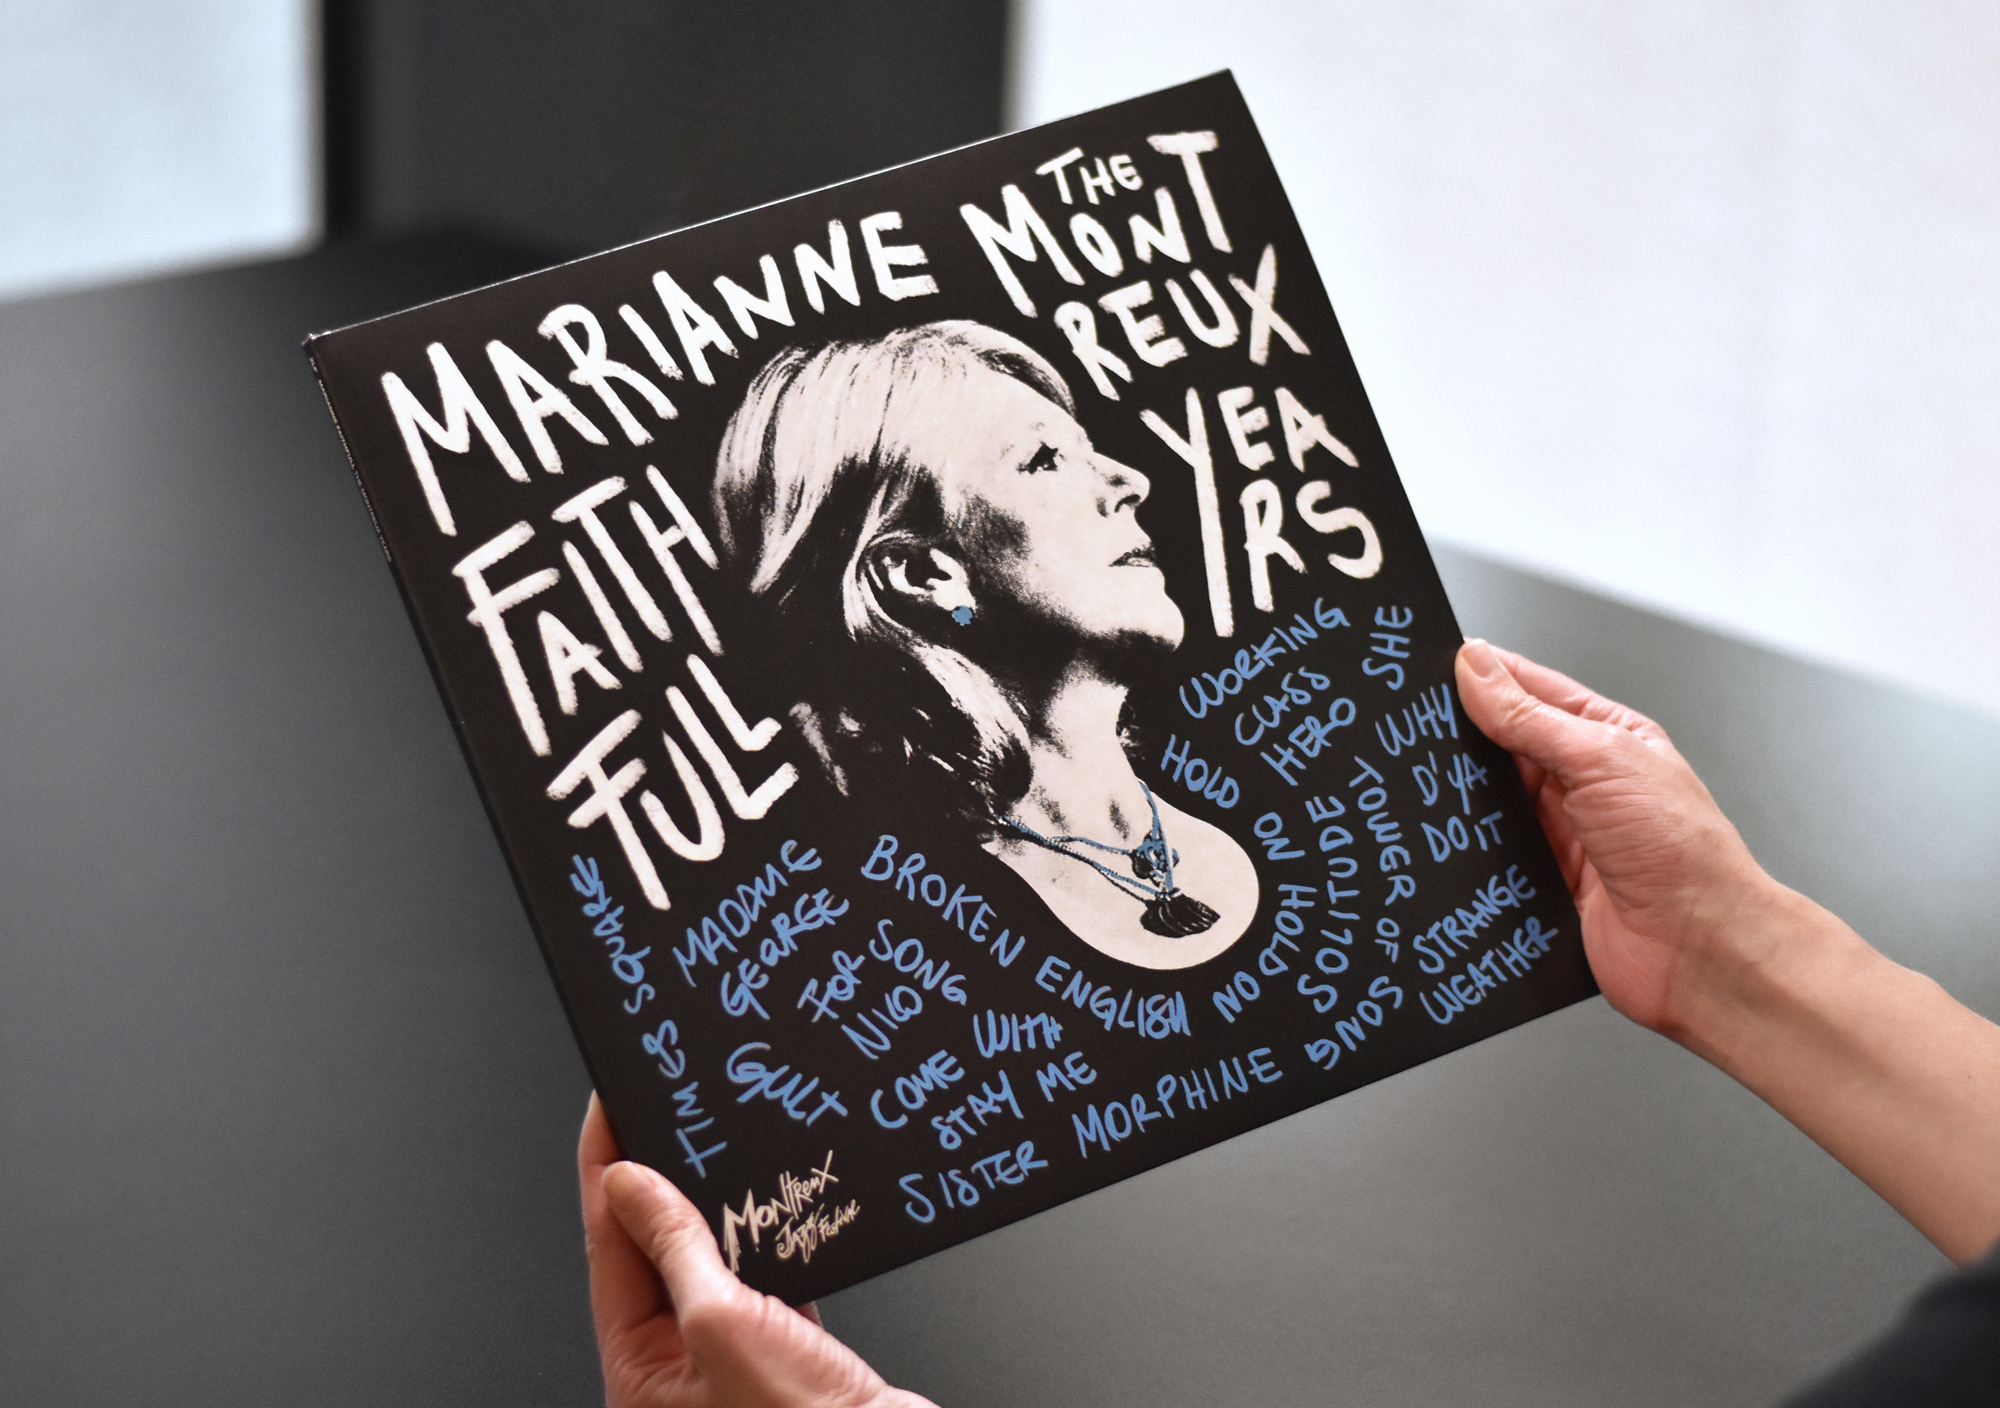 MARIANNE
FAITH
FULL
THE
MONT
REUX
YEA
RS
WORKING
CLASS
HERO
SHE
WHY
D'YA
DO IT
HOLD ON HOLD ON
SOLITUDE
TOWER OF SONG
STRANGE
WEATHER
BROKEN ENGLISH
MADAME
GEORGE
SONG
FOR
NICO
GUILT
COME WITH
STAY ME
SISTER MORPHINE
TIMES SQUARE
MONTREUX
JAZZ
FESTIVAL